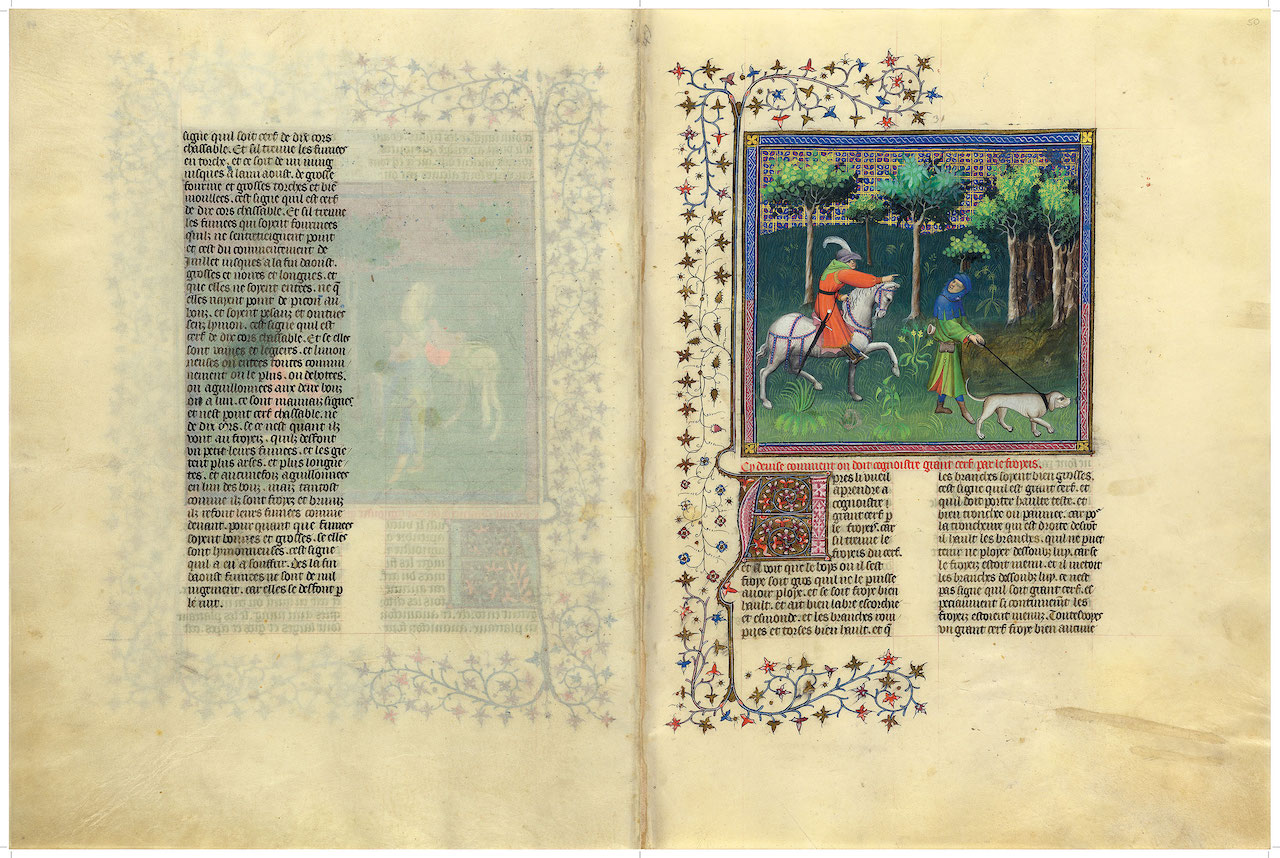 signe quil soit cerf de dix cors
chassable. Et sil treuue les fumees
en torche. et ce soit de mi may
iusques a la mi aoust. de grosse
fourme et grosses torches et bie
moullees. cest signe quil est cerf
de dix cors chassable. Et sil treuue
les fumees qui soyent fourmees
quilz ne sentretieignent point
et cest du commencement de
Juillet iusques a la fin daoust.
grosses et noires et longues. et
que elles ne soyent entees. ne q
elles nayent point de picon au
bout. et soyent pesanz et ointues
senz lymon. cest signe quil est
cerf de dix cors chassable. Et se elles
sont vaines et legieres. et limon
neuses ou entees toutes commu
nement ou le plus. ou debotees.
ou aguillonnees aux deux bouz
ou a lun. ce sont mauuaiz signes
et nest point cerf chassable. ne
de dix cors. se ce nest quant ilz
vont au froyeiz. quilz deffont
vn petit leurs fumees. et les gie
tent plus arses. et plus longue
tes. et aucunefoiz aguillonnees
en lun des bouz. maiz tantost
comme ilz sont froyez et bruniz
ilz refont leurs fumees comme
deuant. pour quant que fumees
soyent bonnes et grosses. se elles
sont lymonneuses. cest signe
quil a eu a souffrir. Des la fin
daoust fumees ne sont de nul
iugement. car elles se deffont p
le ruit.
50
Cy deuise comment on doit cognoistre grant cerf par le froyeis.
Apres li vueil
aprendre a
cognoistre
grant cerf p
le froyer. car
sil treuue le
froyeis du cerf.
et il voit que le boys ou il sest
froye soit gros quil ne le puisse
auoir ploye. et se soit froye bien
hault. et ait bien labre escorche
et esmonde. et les branches rom
pues et torses bien hault. et q
les branches soyent bien grosses.
cest signe quil est grant cerf. et
quil doit porter haulte teste. et
bien troncheie ou paumee. car po
la troncheure qui est droite desront
il hault les branches. qui ne puet
tenir ne ployer dessoubz luy. car se
le froyeis estoit menu. et il metoit
les branches dessoubz luy. ce nest
pas signe quil soit grant cerf. et
pecaument si continuent les
froyeiz estoient menuz. Toutesuoyes
vn grant cerf froye bien aucune